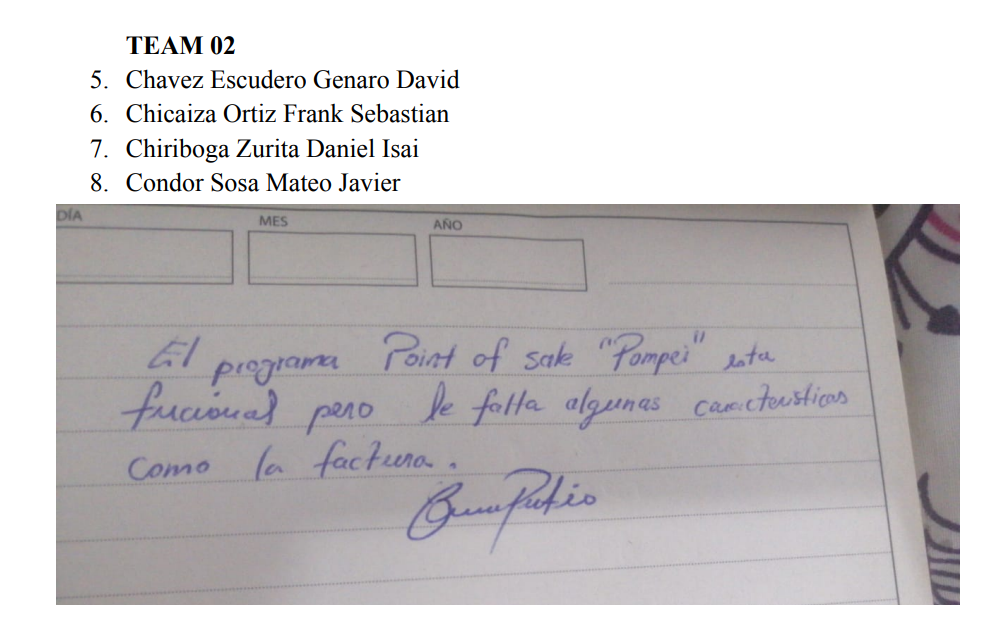 TEAM 02
5. Chavez Escudero Genaro David
6. Chicaiza Ortiz Frank Sebastian
7. Chiriboga Zurita Daniel Isai
8. Condor Sosa Mateo Javier
DÍA MES AÑO
El programa Point of sale "Pompei" esta
fucional pero le falta algunas caracteristicas
como la factura.